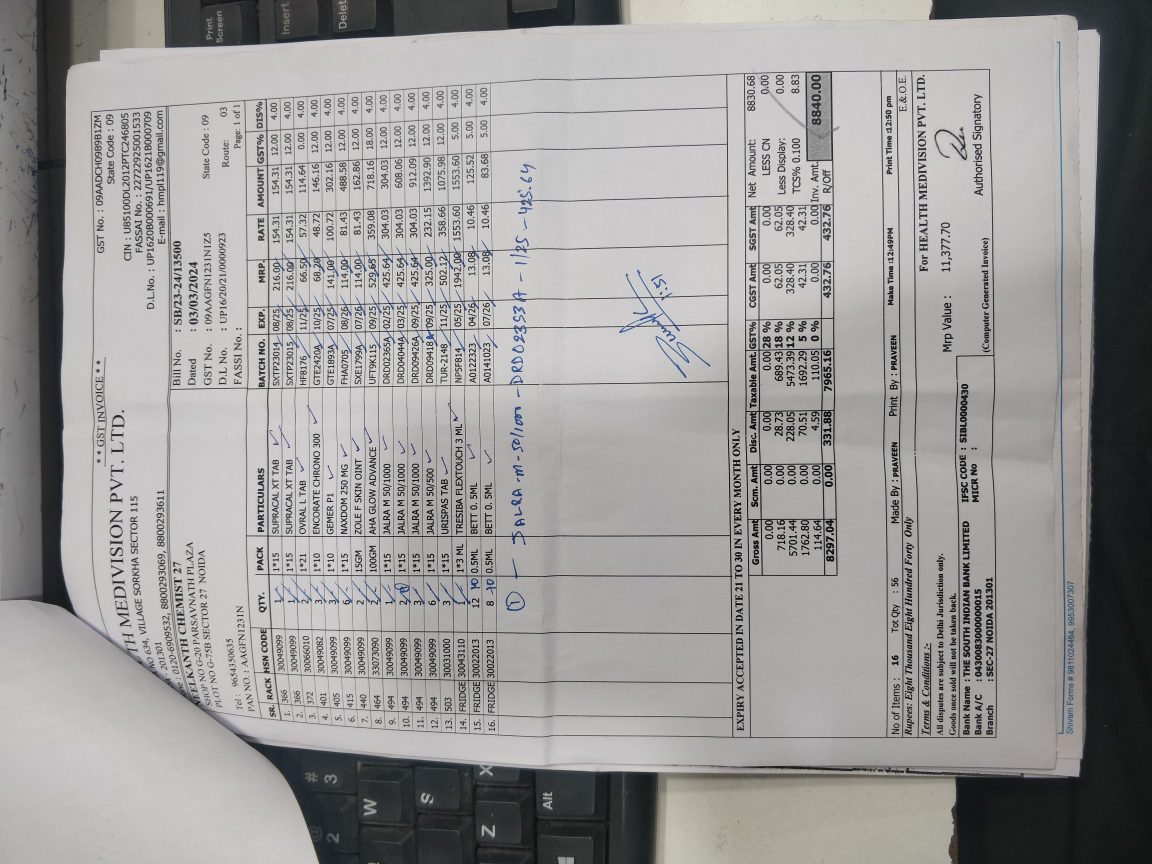 * * GST INVOICE * *
TH MEDIVISION PVT. LTD.
NO 634, VILLAGE SORKHA SECTOR 115
201301
: 0120-6909532, 8800293069, 8800293611
GST No. : 09AADCH0989B1ZM
State Code : 09
CIN : U85100DL2012PTC246805
FASSAI No. : 22722925001533
D.L.No. : UP1620B000691/UP1621B000709
E-mail : hmpl119@gmail.com
EELKANTH CHEMIST 27
SHOP NO G-20 PARSAVNATH PLAZA
PLOT NO G-75B SECTOR 27 NOIDA
Tel : 9654350635
PAN NO. : AAGFN1231N
Bill No. : SB/23-24/13500
Dated : 03/03/2024
GST No. : 09AAGFN1231N1Z5 State Code : 09
D.L No. : UP16/20/21/0000923 Route: 03
FASSI No. : Page: 1 of 1
SR. RACK HSN CODE QTY. PACK PARTICULARS BATCH NO. EXP. MRP. RATE AMOUNT GST% DIS%
1. 366 30049099 1 1*15 SUPRACAL XT TAB SXTP23014 08/25 216.00 154.31 154.31 12.00 4.00
2. 366 30049099 1 1*15 SUPRACAL XT TAB SXTP23015 08/25 216.00 154.31 154.31 12.00 4.00
3. 372 30066010 2 1*21 OVRAL L TAB HF8176 11/25 66.50 57.32 114.64 0.00 4.00
4. 401 30049082 3 1*10 ENCORATE CHRONO 300 GTE2420A 10/25 68.20 48.72 146.16 12.00 4.00
5. 405 30049099 3 1*10 GEMER P1 GTE1893A 07/25 141.00 100.72 302.16 12.00 4.00
6. 415 30049099 6 1*15 NAXDOM 250 MG FHA0705 08/26 114.00 81.43 488.58 12.00 4.00
7. 440 30049099 2 15GM ZOLE F SKIN OINT SXE1799A 07/26 114.00 81.43 162.86 12.00 4.00
8. 464 33073090 2 100GM AHA GLOW ADVANCE UFT9K115 09/25 529.65 359.08 718.16 18.00 4.00
9. 494 30049099 1 1*15 JALRA M 50/1000 DRD02365A 02/25 425.64 304.03 304.03 12.00 4.00
10. 494 30049099 2 1*15 JALRA M 50/1000 DRD04044A 03/25 425.64 304.03 608.06 12.00 4.00
11. 494 30049099 3 1*15 JALRA M 50/1000 DRD09426A 09/25 425.64 304.03 912.09 12.00 4.00
12. 494 30049099 6 1*15 JALRA M 50/500 DRD09418A 09/25 325.00 232.15 1392.90 12.00 4.00
13. 503 30031000 3 1*15 URISPAS TAB TUR-2148 11/25 502.12 358.66 1075.98 12.00 4.00
14. FRIDGE 30043110 1 1*3 ML TRESIBA FLEXTOUCH 3 ML NP5F814 05/25 1942.00 1553.60 1553.60 5.00 4.00
15. FRIDGE 30022013 12 0.5ML BETT 0. 5ML A0122323 04/26 13.08 10.46 125.52 5.00 4.00
16. FRIDGE 30022013 8 0.5ML BETT 0. 5ML A0141023 07/26 13.08 10.46 83.68 5.00 4.00
① — JALRA-M-50/1000 - DRD02353A - 1/25 - 425.64
EXPIRY ACCEPTED IN DATE 21 TO 30 IN EVERY MONTH ONLY
Gross Amt Scm. Amt Disc. Amt Taxable Amt. GST% CGST Amt SGST Amt Net Amount: 8830.68
0.00 0.00 0.00 0.00 28 % 0.00 0.00 LESS CN 0.00
718.16 0.00 28.73 689.43 18 % 62.05 62.05 Less Display: 0.00
5701.44 0.00 228.05 5473.39 12 % 328.40 328.40 TCS% 0.100 8.83
1762.80 0.00 70.51 1692.29 5 % 42.31 42.31
114.64 0.00 4.59 110.05 0 % 0.00 0.00 Inv. Amt. 8840.00
8297.04 0.00 331.88 7965.16 432.76 432.76 R/Off
No of Items : 16 Tot Qty : 56 Made By : PRAVEEN Print By : PRAVEEN Make Time :12:49PM Print Time :12:50 pm
Rupees: Eight Thousand Eight Hundred Forty Only E.&.O.E.
Terms & Conditions :-
All disputes are subject to Delhi Jurisdiction only.
Goods once sold will not be taken back.
Mrp Value : 11,377.70
For HEALTH MEDIVISION PVT. LTD.
Bank Name : THE SOUTH INDIAN BANK LIMITED IFSC CODE : SIBL0000430
Bank A/C : 0430083000000015 MICR No :
Branch : SEC-27 NOIDA 201301
(Computer Generated Invoice)
Authorised Signatory
Shivam Forms # 9811024464, 9953007307
Print Screen
Insert
Delete
# 3
@ 2
W
S
X
Z
Alt